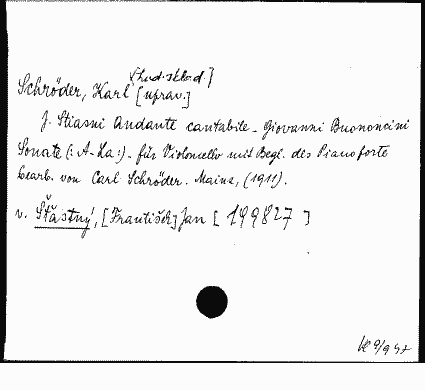 [hud. sklad.]
Schröder, Karl [uprav.]
J. Stiasni Andante cantabile - Giovanni Buononcini
Sonate (: A-La :) - für Violoncello mit Begl. des Pianoforte
bearb. von Carl Schröder. Mainz, (1911).
v. Šťastný, [František] Jan [ 199827 ]